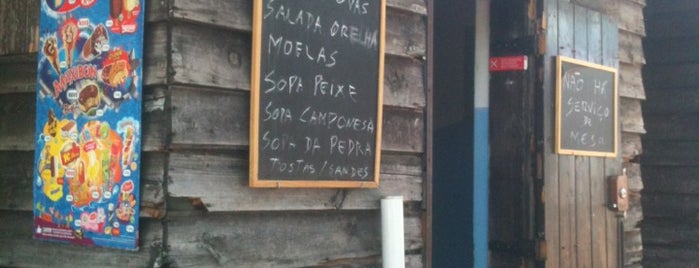 SALADA ORELHA
MOELAS
SOPA PEIXE
SOPA CAMPONESA
SOPA DA PEDRA
TOSTAS/SANDES
NÃO HÁ
SERVIÇO
DE
MESA